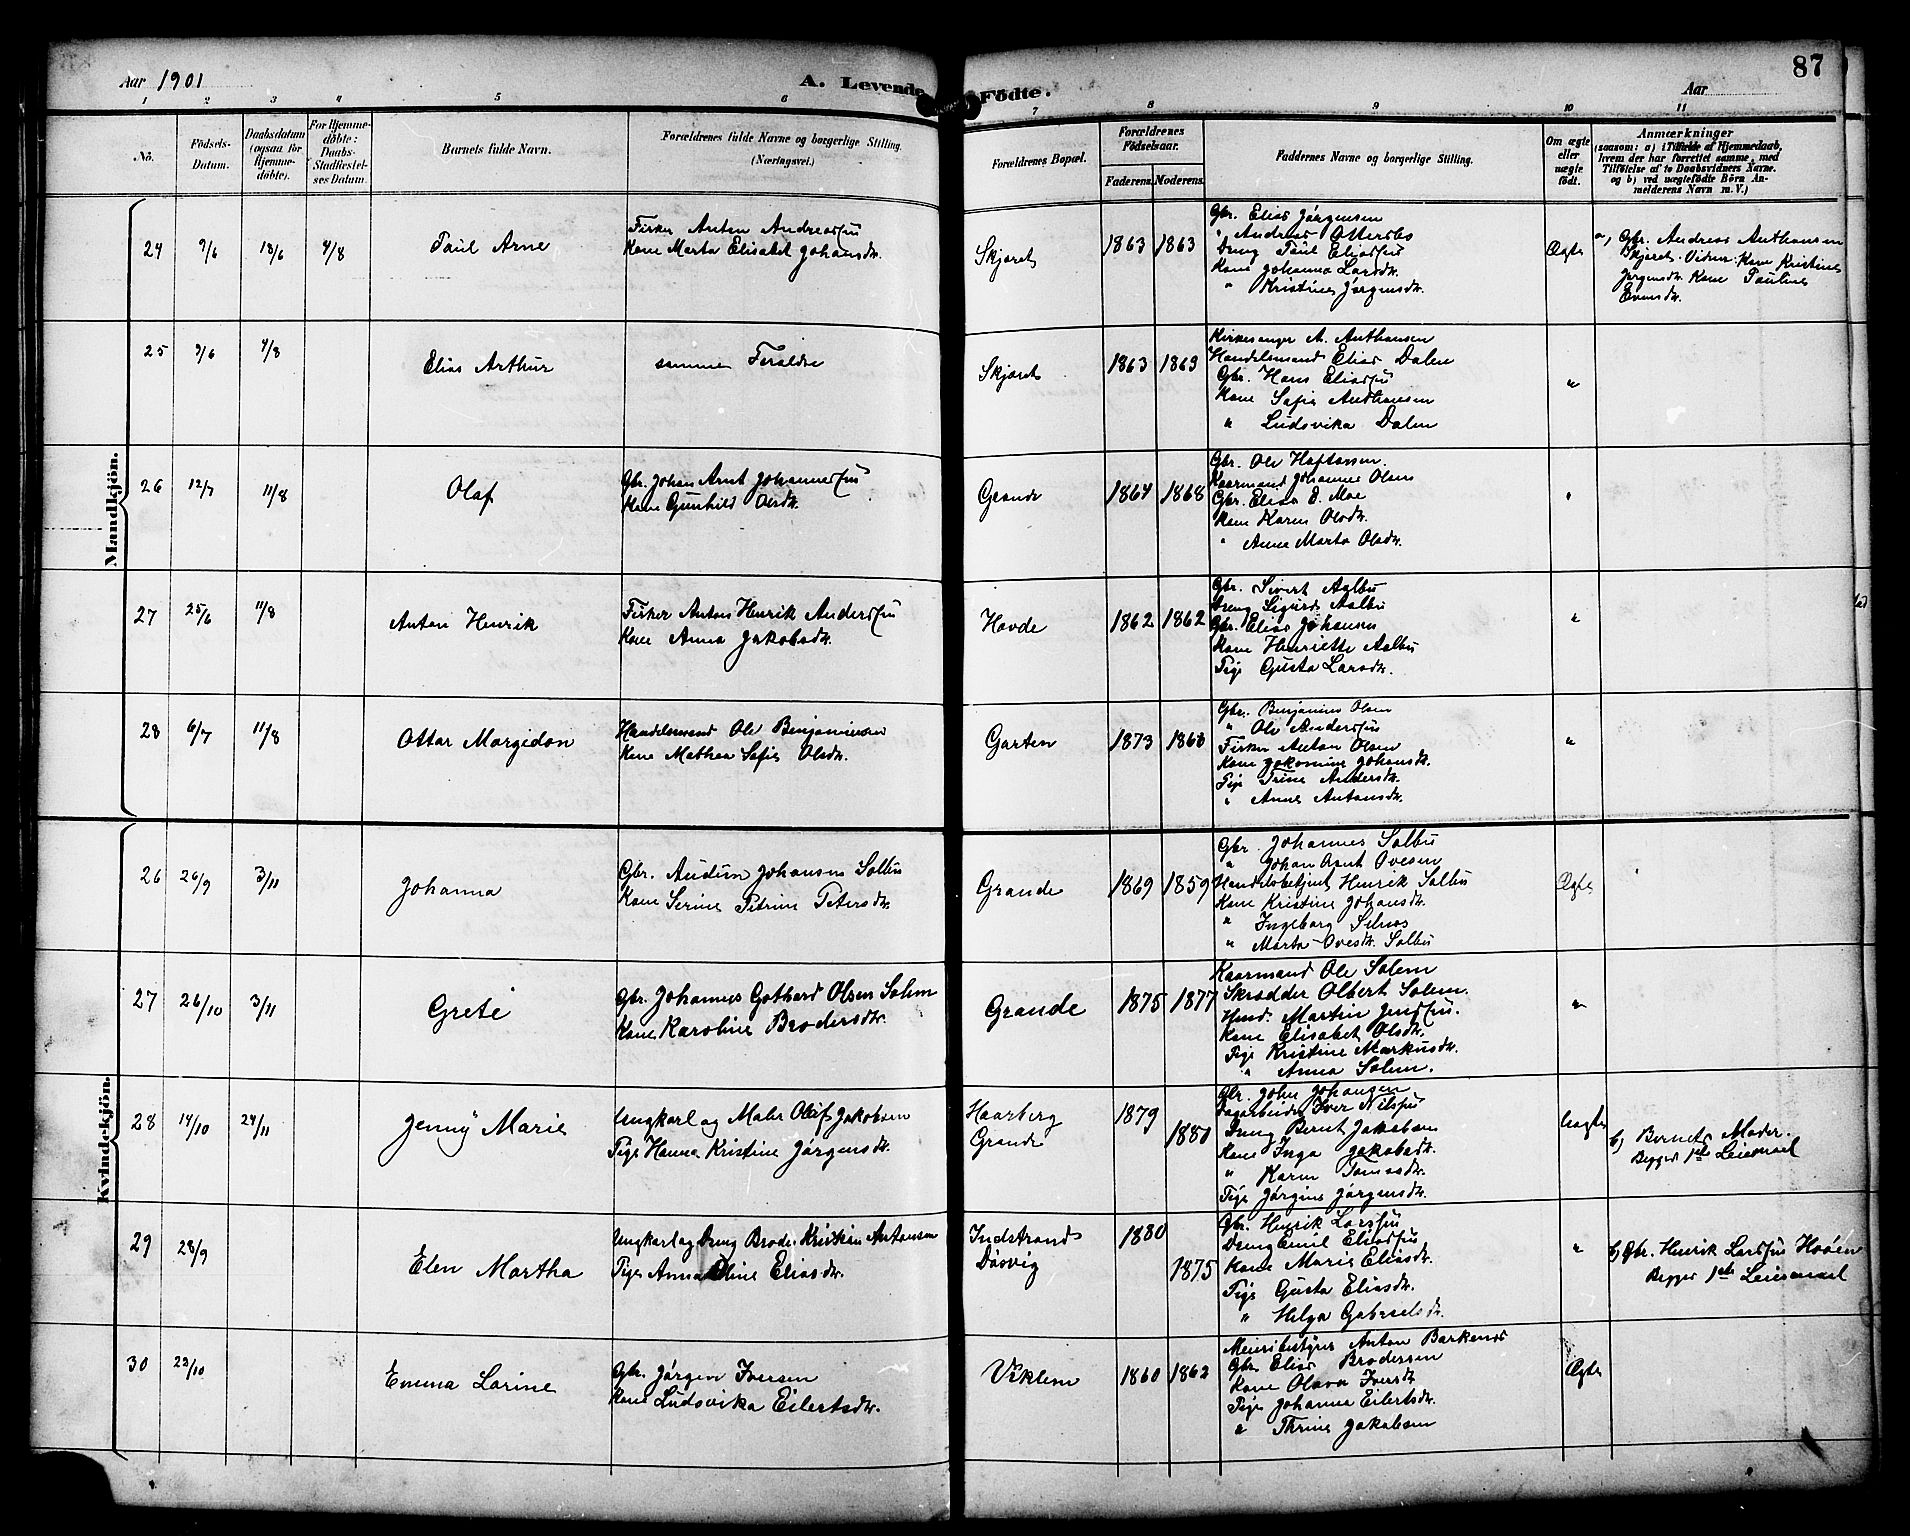 87
Aar 1901
A. Levende Födte.
Aar
1 2 3 4 5 6 7 8 9 10 11
No.
Födsels-Datum.
Daabsdatum (ogsaa for Hjemme-döbte).
For Hjemme-döbte: Daabs-Stadfæstel-ses Datum.
Barnets fulde Navn.
Forældrenes fulde Navne og borgerlige Stilling. (Næringsvei.)
Forældrenes Bopæl.
Forældrenes Födselsaar.
Faderens. Moderens.
Faddernes Navne og borgerlige Stilling.
Om ægte eller uægte födt.
Anmærkninger
(saasom: a) i Tilfælde af Hjemmedaab, hvem der har forrettet samme, med Tilföielse af to Daabsvidners Navne, og b) ved uægtefödte Börn An-melderens Navn m. V.)
Mandkjön.
24 9/6 13/6 4/8 Paul Arne
Fisker Anton Andreassen
Kone Marta Elisabet Johansdtr.
Skjøret 1863 1863
Gbr. Elias Jørgensen
" Andreas Ottersbo
Dreng Paul Eliassen
Kone Johanna Larsdtr.
" Kristine Jørgensdtr.
Ægte
a, Gbr. Andreas Anthonsen
Skjøret. Vidner: Kone Kristine
Jørgensdtr. Kone Pauline
Evensdtr.
25 9/6 4/8 Elias Arthur
samme Foraldre
Skjøret 1863 1863
Kirkesanger A. Anthonsen
Handelsmand Elias Dalen
Gbr. Hans Eliassen
Kone Sofie Anthonsen
" Ludovika Dalen
"
26 12/7 11/8 Olaf
Gbr. Johan Arnt Johannessen
Kone Gunhild Olsdtr.
Grande 1864 1868
Gbr. Ole Haftorsen.
Kaarmand Johannes Olsen
Gbr. Elias O. Moe
Kone Karen Olsdtr.
" Anne Marta Olsdtr.
"
27 25/6 11/8 Anton Henrik
Fisker Anton Henrik Anderssen
Kone Anna Jakobsdtr.
Hovde 1862 1862
Gbr. Sivert Aalbu
Dreng Sigurd Aalbu
Gbr. Elias Johansen
Kone Henriette Aalbu
Pige Gusta Larsdtr.
"
28 6/7 11/8 Ottar Morgidon
Handelsmand Ole Benjaminsen
Kone Mathea Sofie Olsdtr.
Garten 1873 1868
Gbr. Benjamin Olsen
" Ole Anderssen
Fisker Anton Olsen
Kone Jakomine Johansdtr.
Pige Trine Andersdtr.
" Anne Antonsdtr.
"
Kvindekjön.
26 26/9 3/11 Johanna
Gbr. Audun Johansen Solbu
Kone Serine Petrine Petersdtr.
Grande 1869 1859
Gbr. Johannes Solbu
" Johan Arnt Ovesen
Handelsbetjent Henrik Solbu
Kone Kristine Johansdtr.
" Ingeborg Selnes
" Marta Ovesdtr. Solbu
Ægte
27 26/10 3/11 Grete
Gbr. Johannes Gothard Olsen Solem
Kone Karoline Brodersdtr.
Grande 1875 1877
Kaarmand Ole Solem
Skrædder Olbert Solem.
Husd. Martin Jenssen.
Kone Elisabet Olsdtr.
Pige Kristine Markusdtr.
" Anna Solem.
"
28 14/10 24/11 Jenny Marie
Ungkarl og Maler Olaf Jakobsen
Pige Hanna Kristine Jørgensdtr.
Haarberg
Grande
1879
1880
Gbr. John Johansen
Dagarbeider Iver Nilssen
Dreng Bernt Jakobsen
Kone Inga Jakobsdtr.
" Karen Tomasdtr.
Pige Jørgine Jørgensdtr.
Uægte
b, Barnets Moder.
Begges 1ste Leiermaal
29 28/9 Elen Martha
Ungkarl og Dreng Broder Kristian Antonsen
Pige Anna Oline Eliasdtr.
Indstrand
Døsvig
1880
1875
Gbr. Henrik Larssen
Dreng Emil Eliassen
Kone Marie Eliasdtr.
Pige Gusta Eliasdtr.
" Helga Gabrielsdtr.
"
b, Gbr. Henrik Larssen Hoøen
Begges 1ste Leiermaal
30 22/10 Emma Lorine
Gbr. Jørgen Iversen
Kone Ludovika Eilertsdtr.
Viklem 1860 1862
Meieribestyrer Anton Barkenes
Gbr. Elias Brodersen
Kone Olava Iversdtr.
Pige Johanna Eilertsdtr.
" Thrine Jakobsen
Ægte